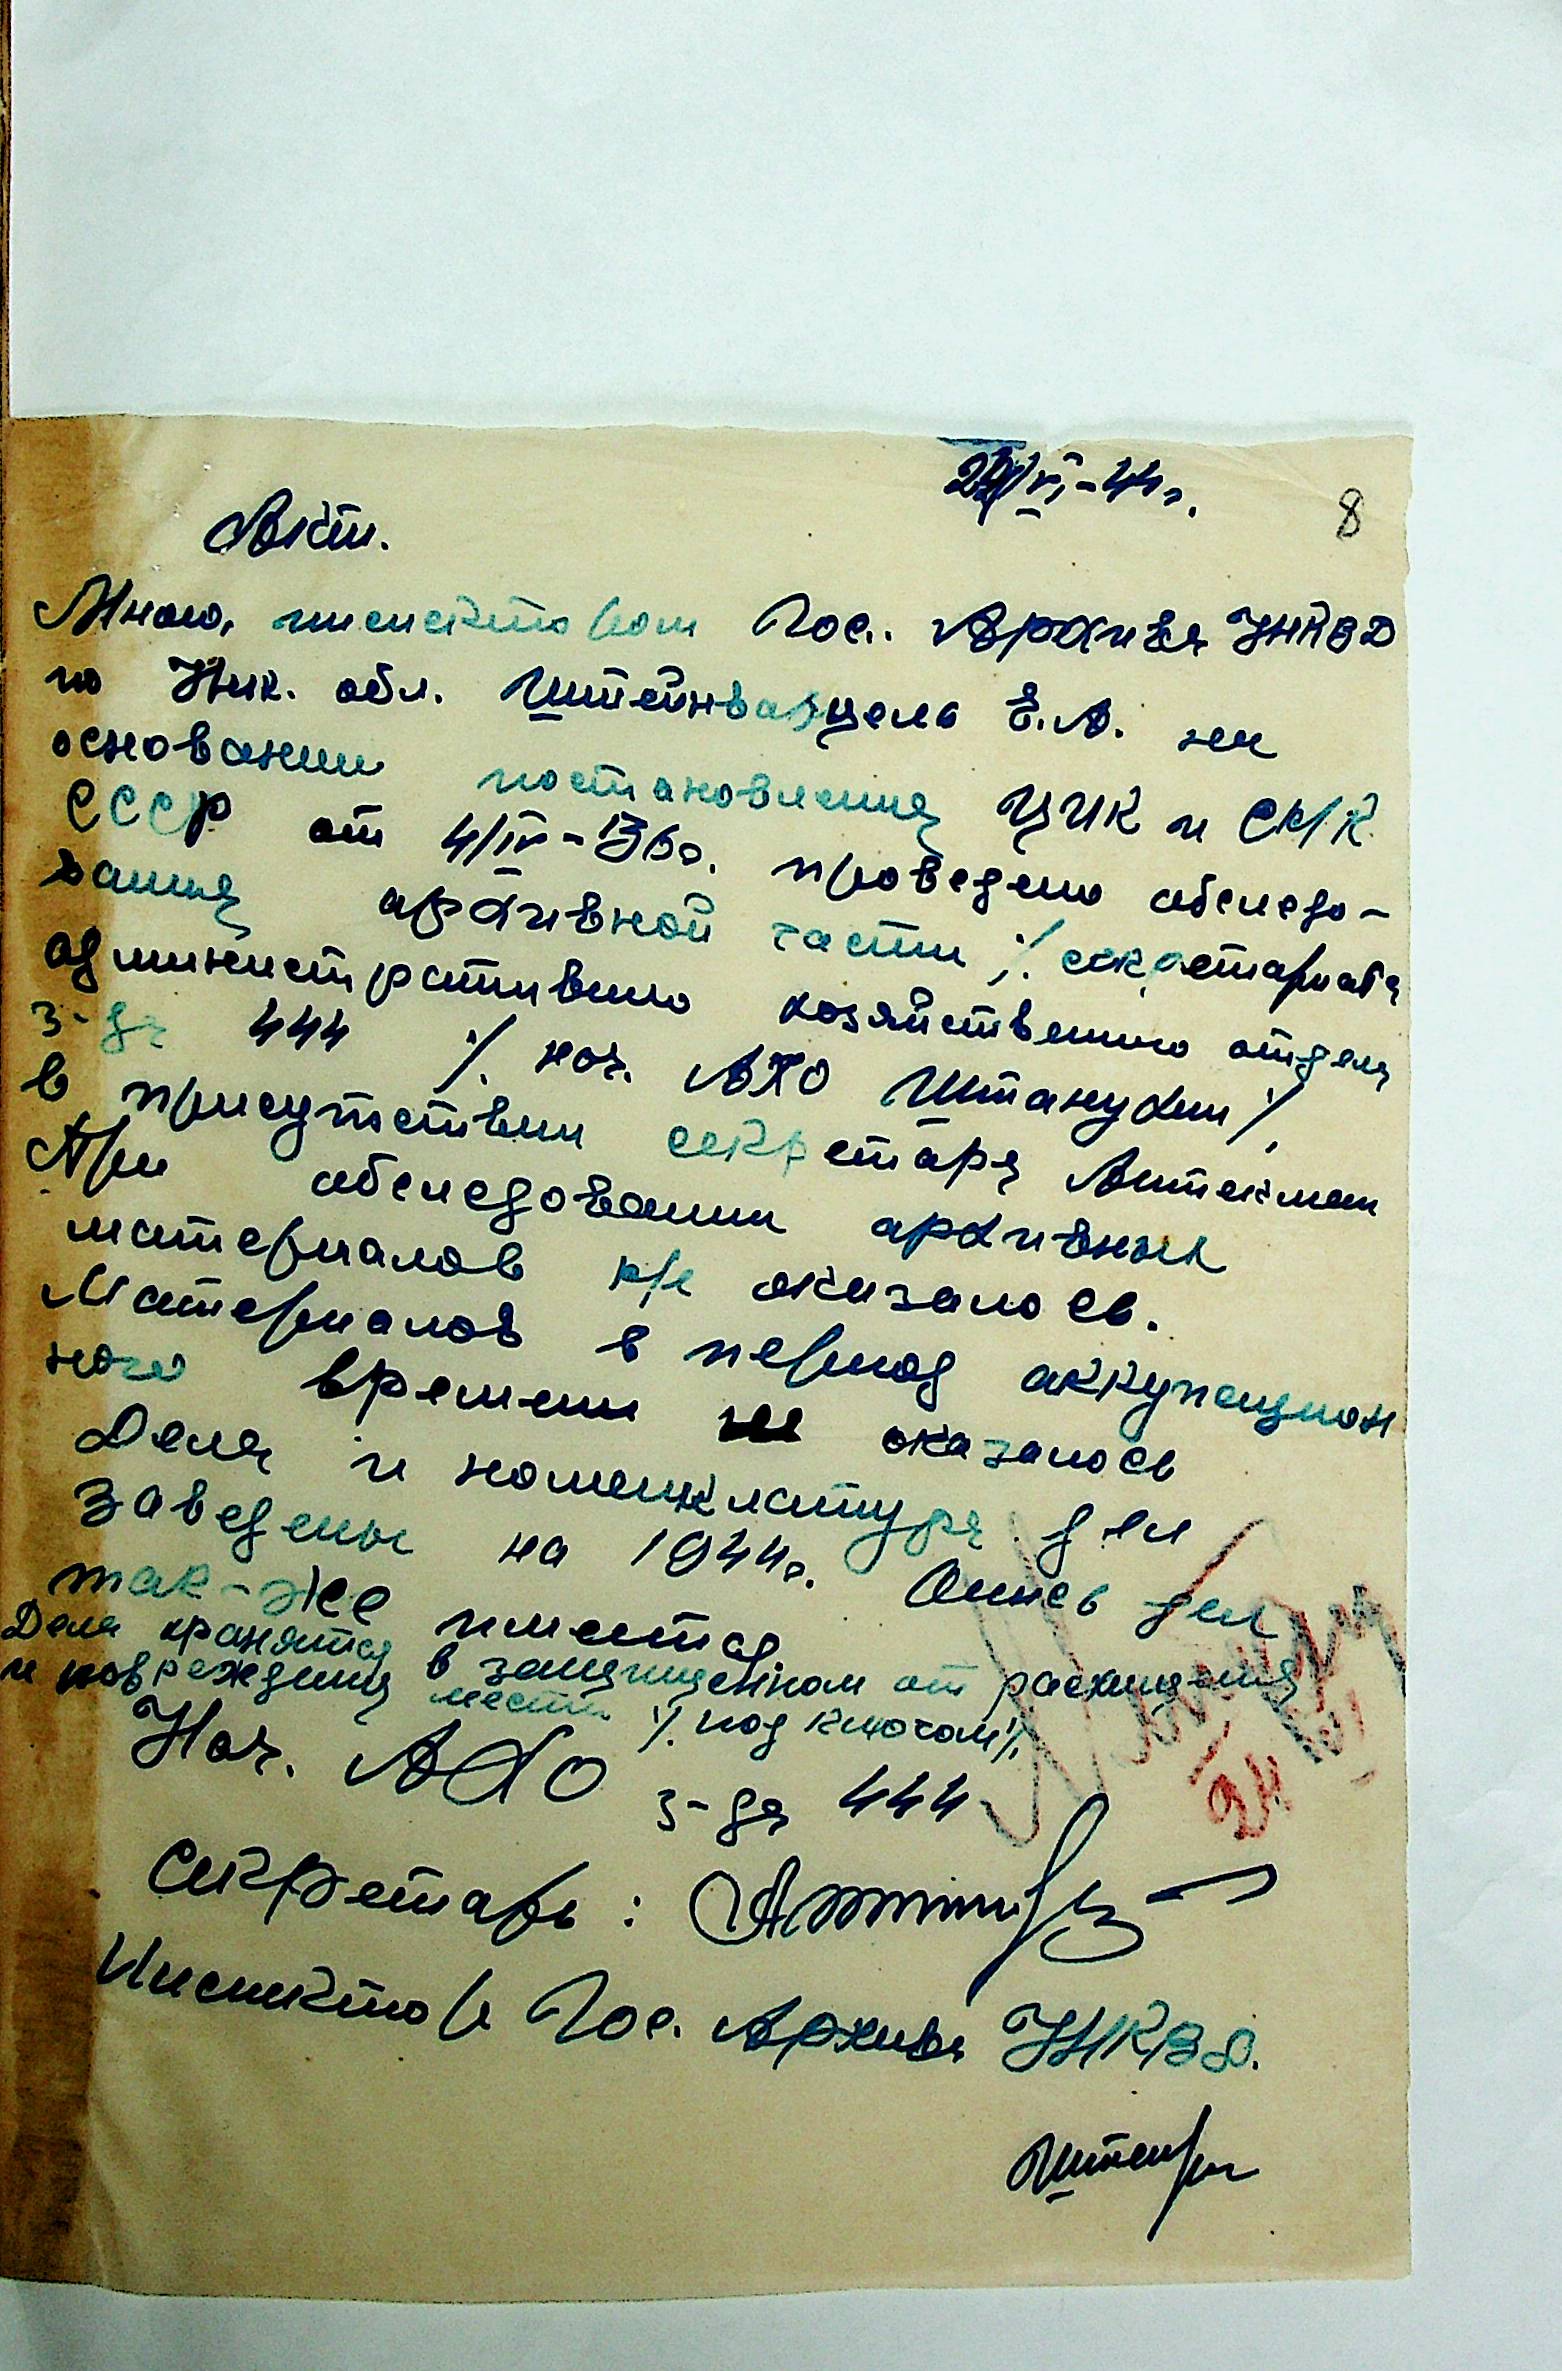 24/VI-44г.
8
Акт.
Мною, инспектором Гос. Архива УНКВД
по Ник. обл. Штейнванцель Е.А. на
основании постановления ЦИК и СНК
СССР от 4/IV-36г. проведено обследо-
вания архивной части /. секретариата
административно хозяйственного отдела
з-да 444 /. нач. АХО Штанухин /.
в присутствии секретаря Аптекман
При обследовании архивных
материалов не оказалось.
Материалов в период аккупацион
ного времени не оказалось
Дела и номенклатура дел
заведены на 1944г. Опись дел
так-же имеется
Дела хранятся в защищенном от расхищения
и повреждения месте /. под ключом /.
Нач. АХО з-да 444
секретарь:
Инспектор Гос. Архива УНКВД.